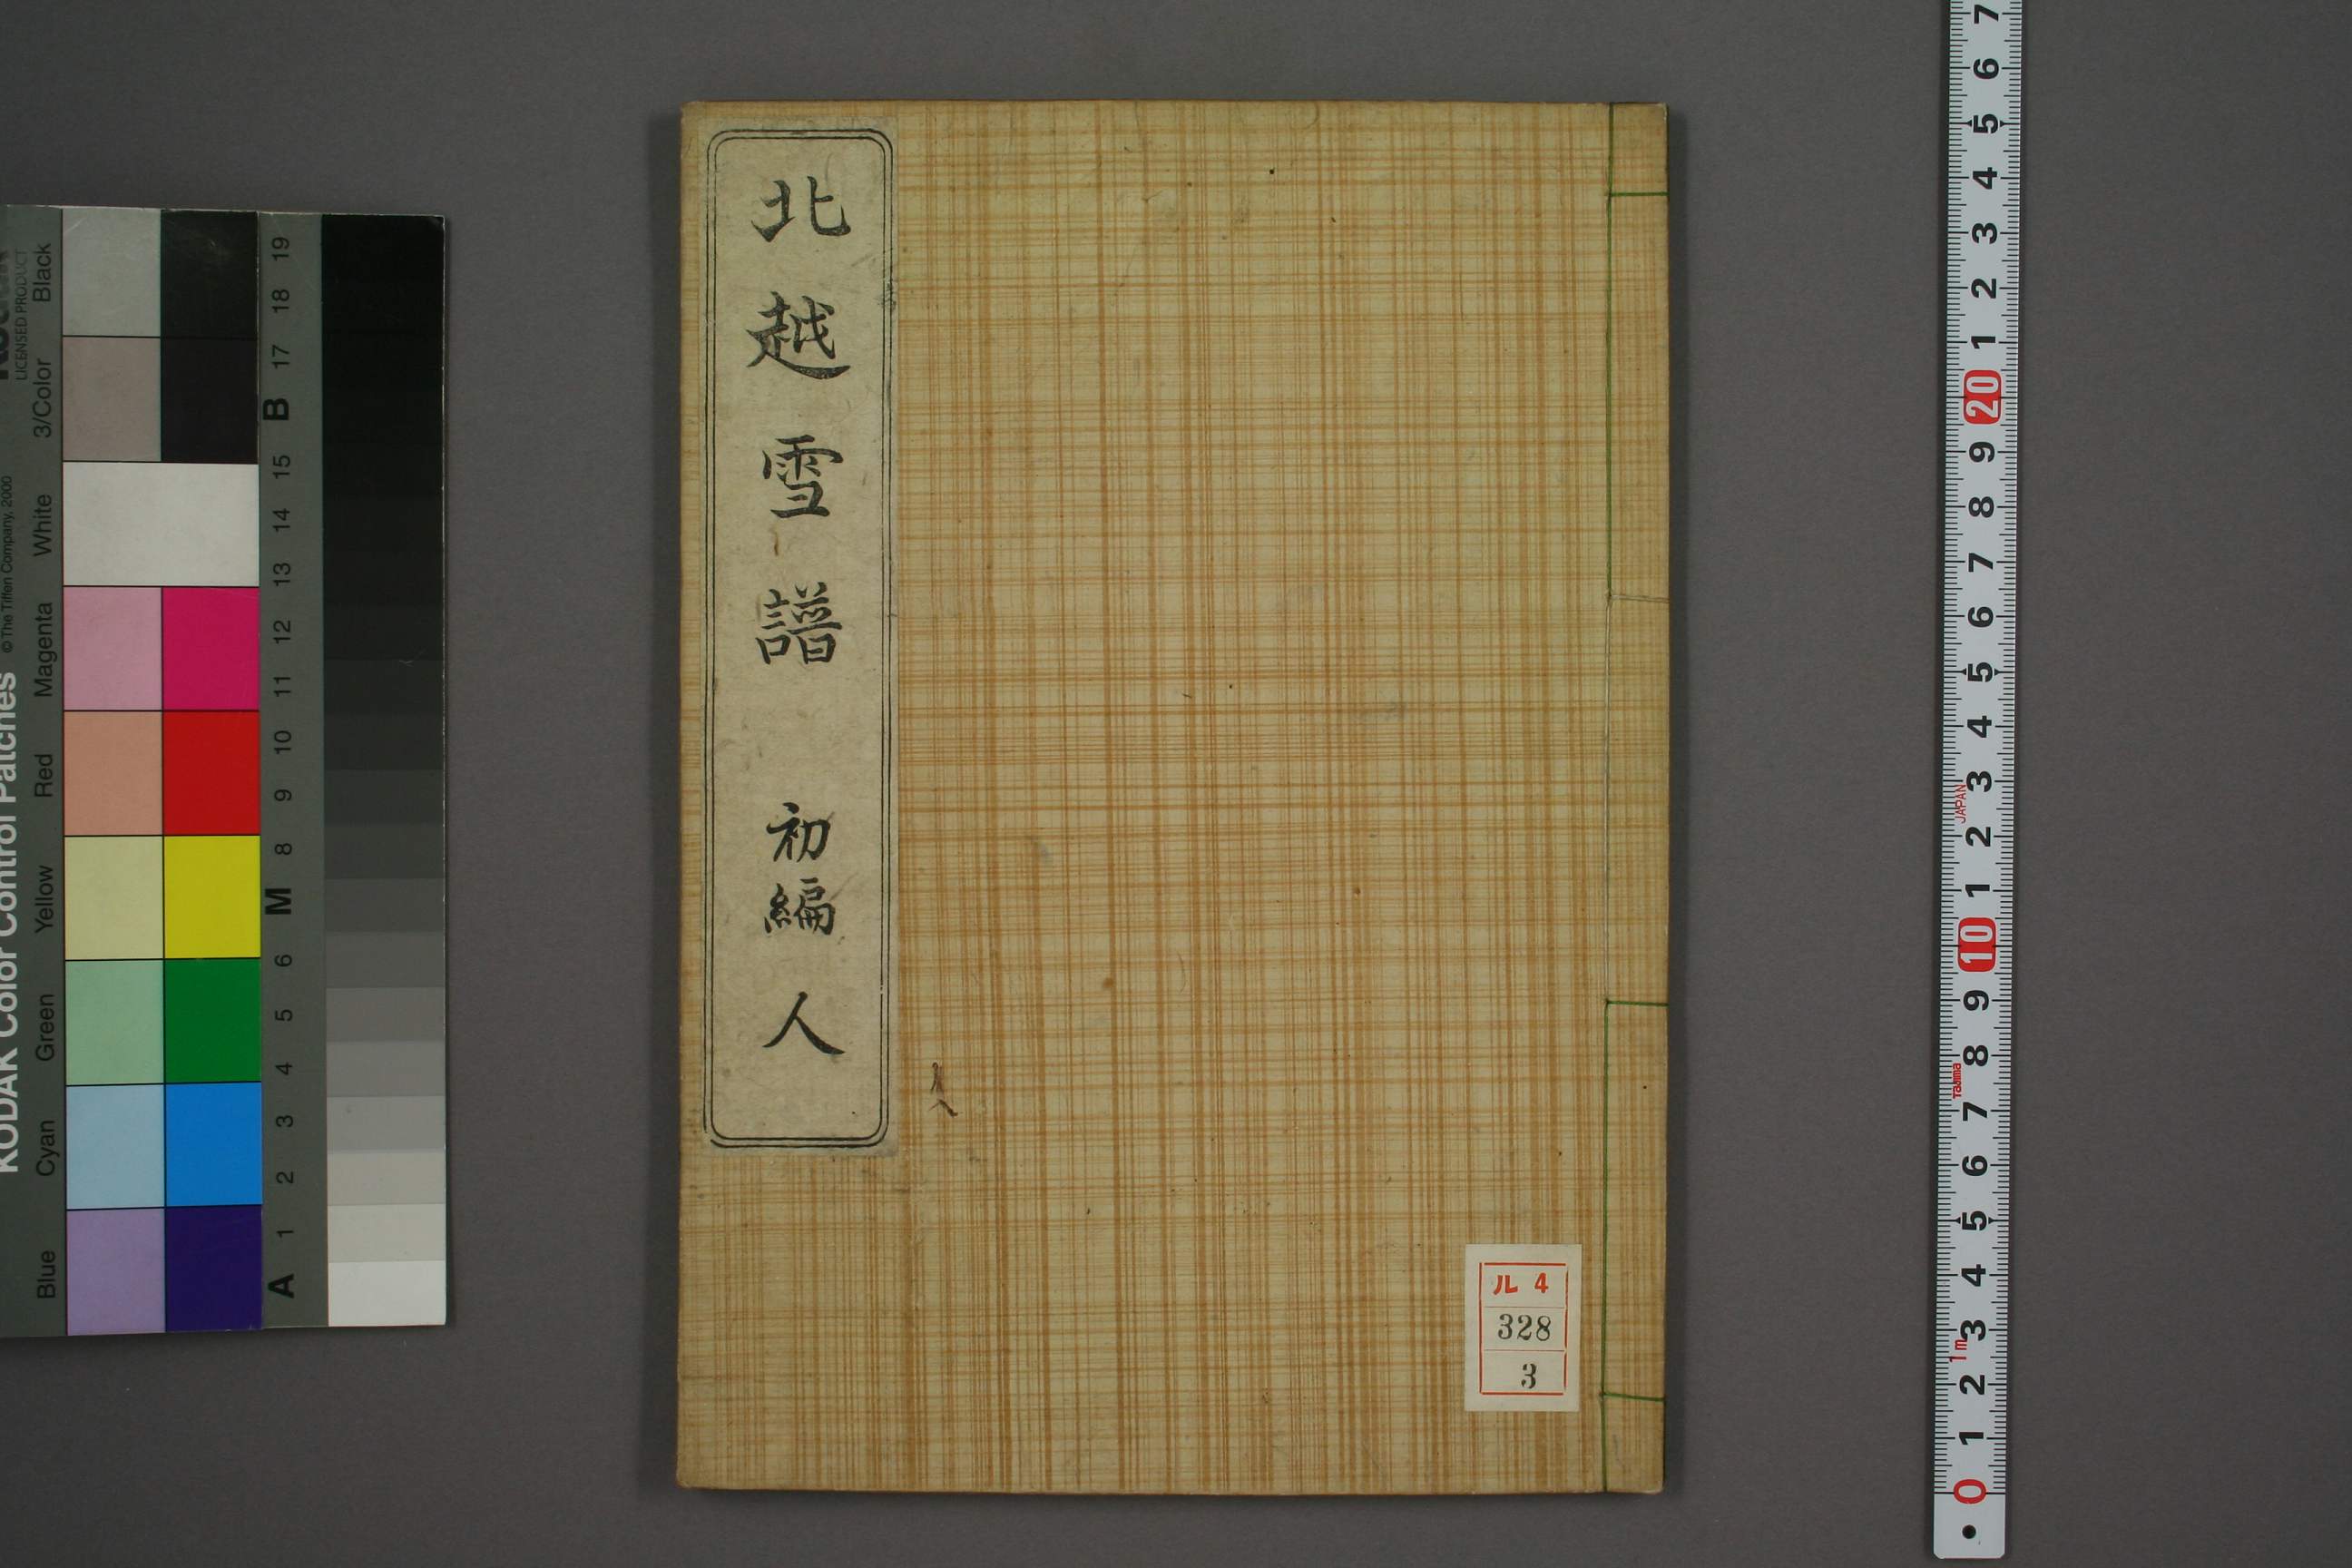 北越雪譜 初編 人
ル 4
328
3
KODAK Color Control Patches
© The Tiffen Company, 2000
LICENSED PRODUCT
Blue
Cyan
Green
Yellow
Red
Magenta
White
3/Color
Black
A 1 2 3 4 5 6 M 8 9 10 11 12 13 14 15 B 17 18 19
0 1 2 3 4 5 6 7 8 9 10 1 2 3 4 5 6 7 8 9 20 1 2 3 4 5 6 7
1m
Tajima
JAPAN